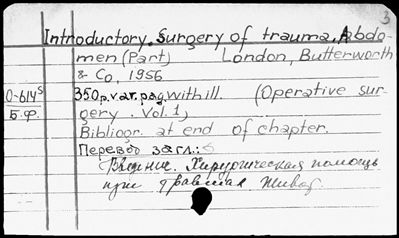 3
Introductory. Surgery of trauma. Abdo-
men (Part) London, Butterworth
& Co, 1956
0-614⁵ 350p. var. pag. with ill. (Operative sur-
Б.Ф. gery. Vol. 1)
Bibliogr. at end of chapter.
Перевод загл.:
Введение. Хирургическая помощь
при травмах живот.